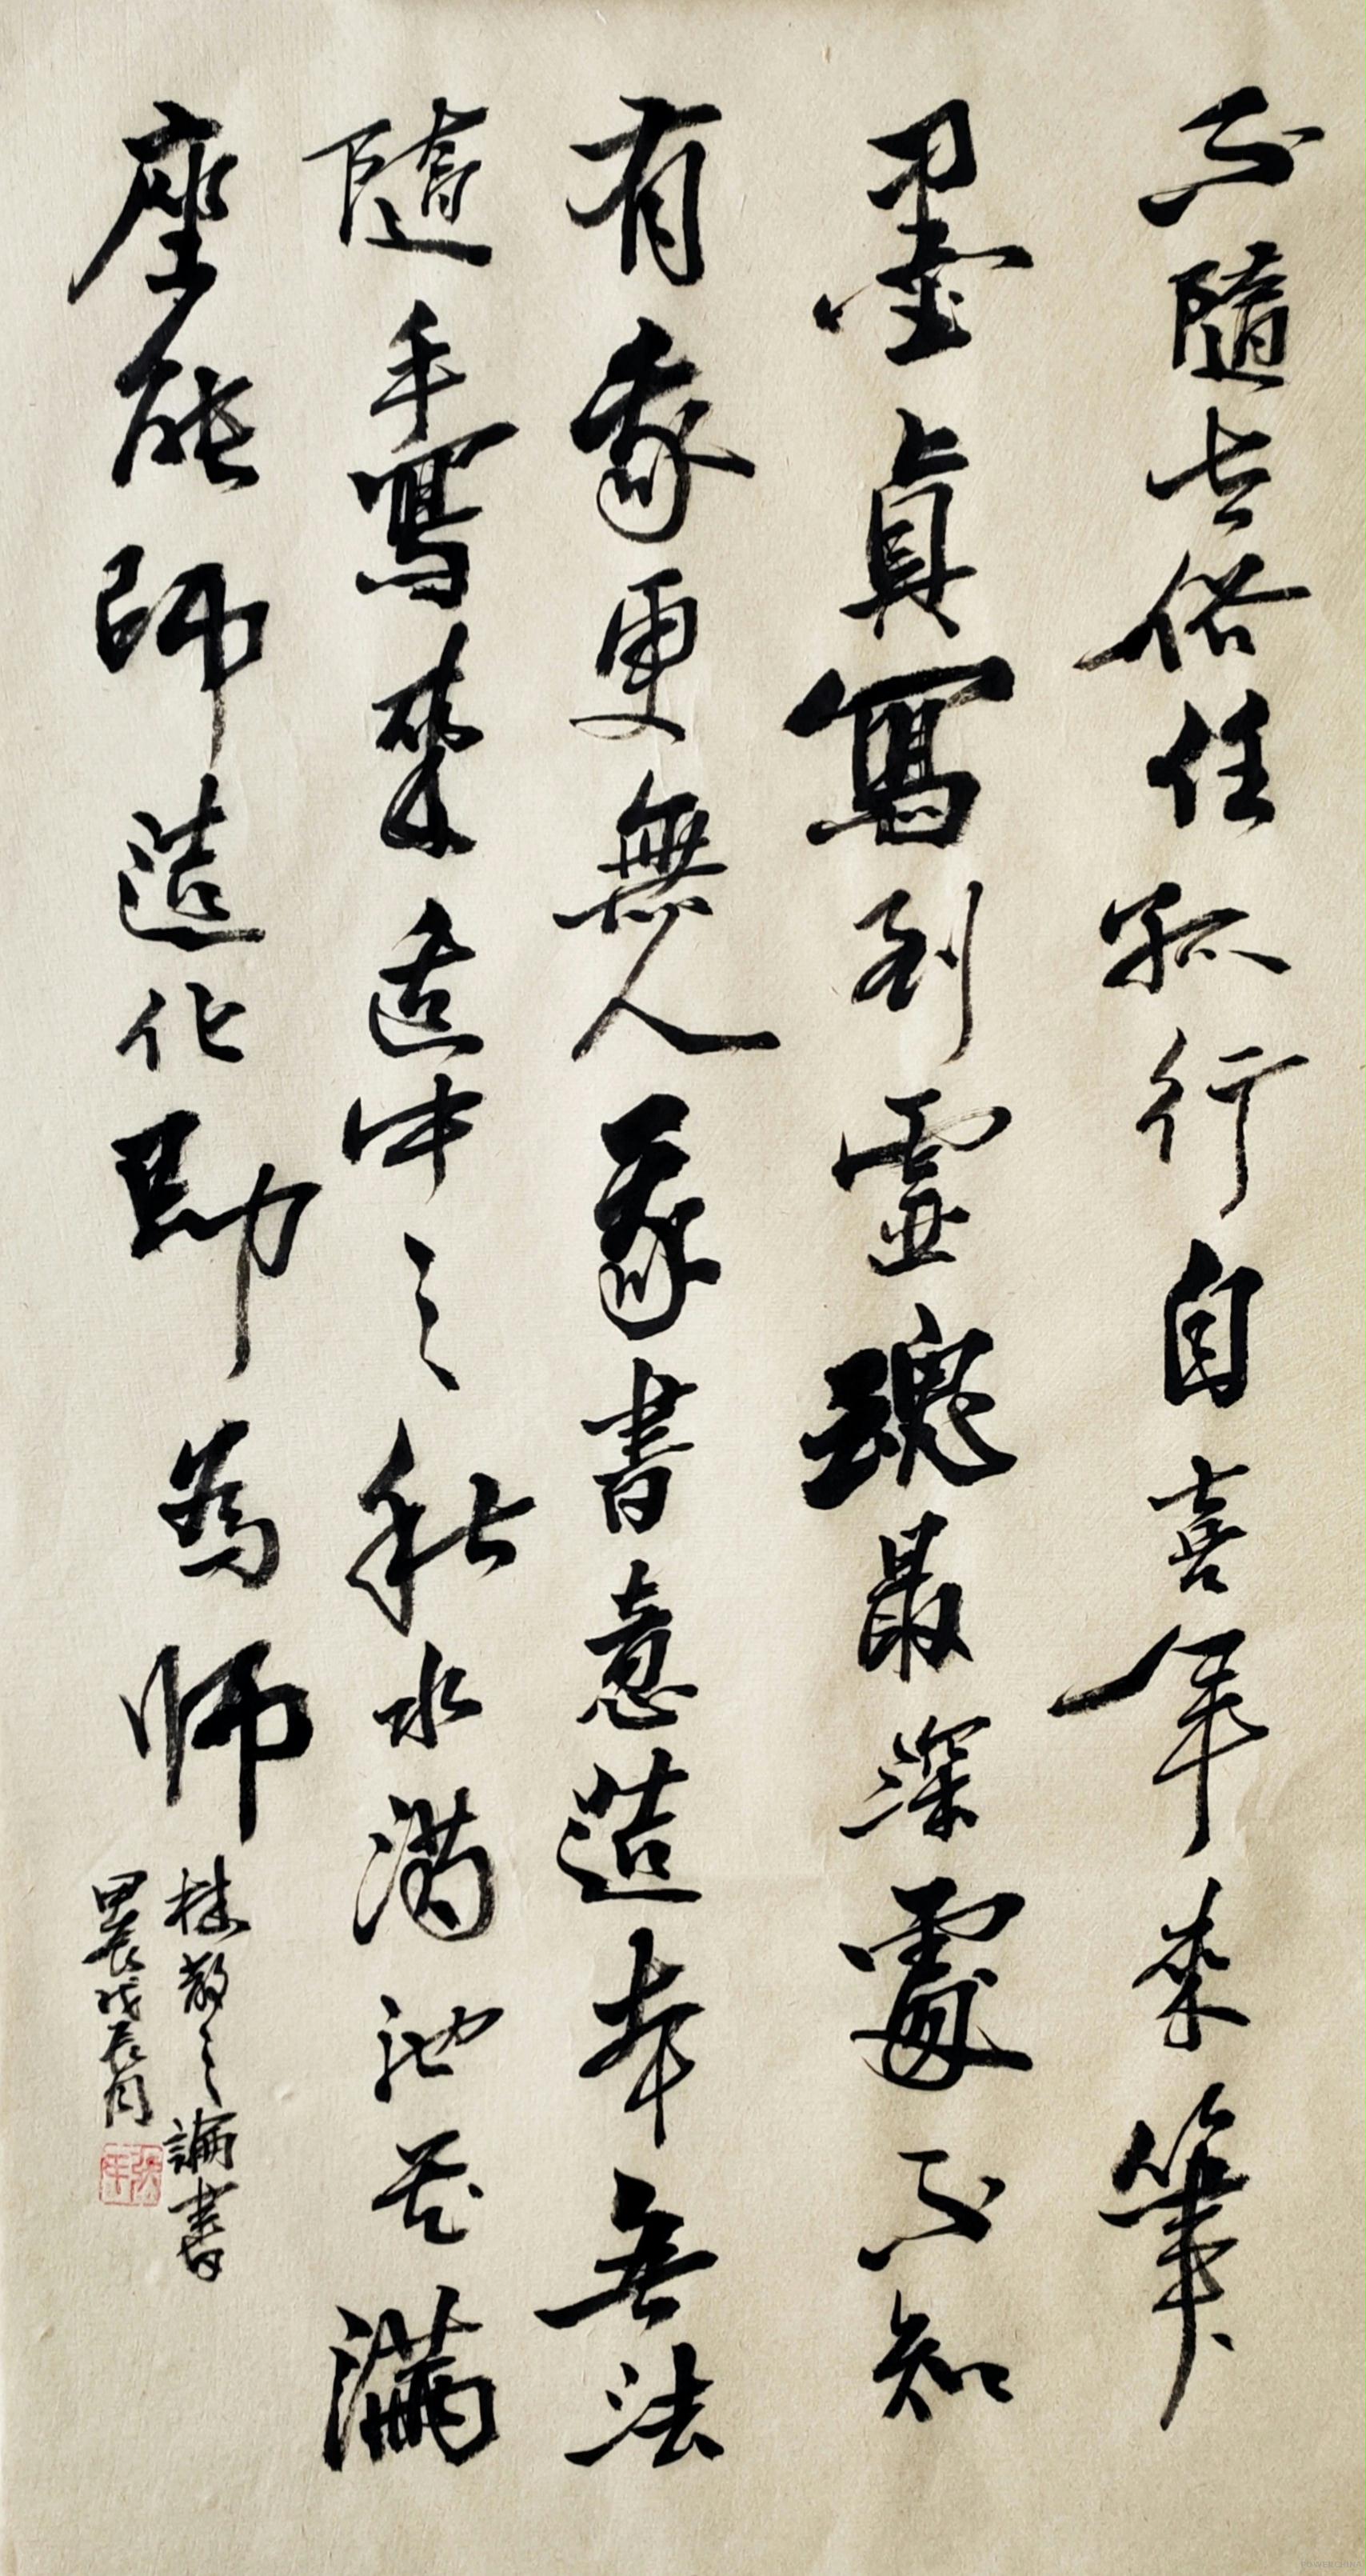 不隨世俗任孤行自喜年來筆
墨真寫到靈魂最深處不知
有我更無人我書意造本無法
隨手寫來适中之秋水滿池花滿
座能師造化即為师
林散之論書
甲辰戊辰月